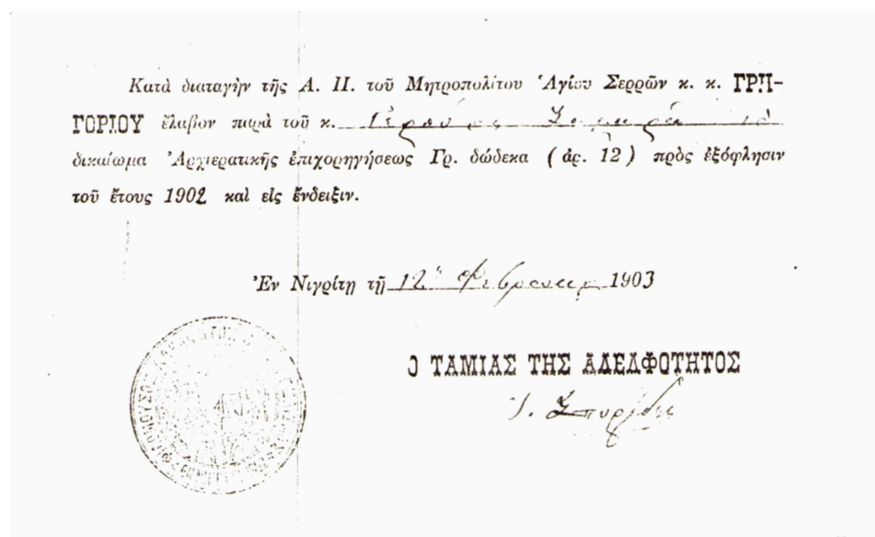 Κατὰ διαταγὴν τῆς Α. Π. τοῦ Μητροπολίτου Ἁγίου Σερρῶν κ. κ. ΓΡΗ-
ΓΟΡΙΟΥ ἔλαβον παρὰ τοῦ κ.
δικαίωμα Ἀρχιερατικῆς ἐπιχορηγήσεως Γρ. δώδεκα (ἀρ. 12) πρὸς ἐξόφλησιν
τοῦ ἔτους 1902 καὶ εἰς ἔνδειξιν.
Ἐν Νιγρίτῃ τῇ 12 Φεβρουαρ 1903
Ο ΤΑΜΙΑΣ ΤΗΣ ΑΔΕΛΦΟΤΗΤΟΣ